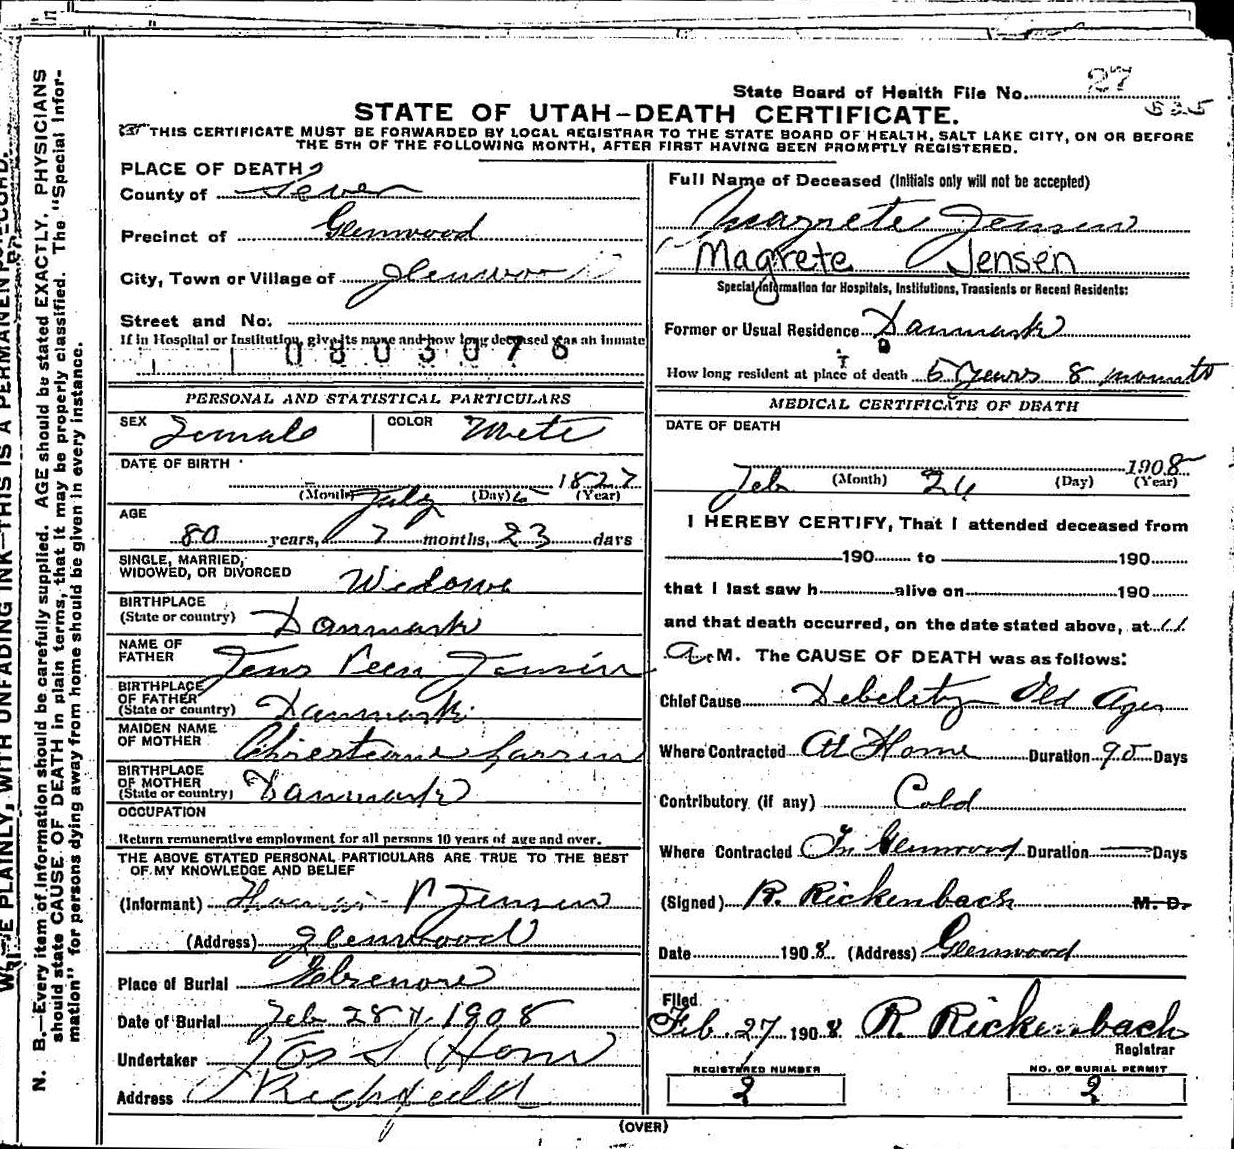 State Board of Health File No. 27
525
STATE OF UTAH-DEATH CERTIFICATE.
THIS CERTIFICATE MUST BE FORWARDED BY LOCAL REGISTRAR TO THE STATE BOARD OF HEALTH, SALT LAKE CITY, ON OR BEFORE
THE 5TH OF THE FOLLOWING MONTH, AFTER FIRST HAVING BEEN PROMPTLY REGISTERED.
PLACE OF DEATH
County of Sevier
Precinct of Glenwood
City, Town or Village of Glenwood
Street and No.
If in Hospital or Institution, give its name and how long deceased was an inmate
0803076
PERSONAL AND STATISTICAL PARTICULARS
SEX Female COLOR White
DATE OF BIRTH
1827
(Month) July (Day) 5 (Year)
AGE
80 years, 7 months, 23 days
SINGLE, MARRIED,
WIDOWED, OR DIVORCED Widowe
BIRTHPLACE
(State or country) Danmark
NAME OF
FATHER Jens Peen Jensen
BIRTHPLACE
OF FATHER
(State or country) Danmark
MAIDEN NAME
OF MOTHER Christiane Larsen
BIRTHPLACE
OF MOTHER
(State or country) Danmark
OCCUPATION
Return remunerative employment for all persons 10 years of age and over.
THE ABOVE STATED PERSONAL PARTICULARS ARE TRUE TO THE BEST
OF MY KNOWLEDGE AND BELIEF
(Informant) P Jensen
(Address) Glenwood
Place of Burial Elsenore
Date of Burial Feb 28 1908
Undertaker Horne
Address Richfield
Full Name of Deceased (Initials only will not be accepted)
Magrete Jensen
Magrete Jensen
Special Information for Hospitals, Institutions, Transients or Recent Residents:
Former or Usual Residence Danmark
How long resident at place of death 5 years 8 months
MEDICAL CERTIFICATE OF DEATH
DATE OF DEATH
1908
Feb (Month) 26 (Day) (Year)
I HEREBY CERTIFY, That I attended deceased from
190 to 190
that I last saw h alive on 190
and that death occurred, on the date stated above, at 11
A. M. The CAUSE OF DEATH was as follows:
Chief Cause Debelety Old Age
Where Contracted At Home Duration 90 Days
Contributory (if any) Cold
Where Contracted In Glenwood Duration — Days
(Signed) R. Rickenbach M. D.
Date 1908 (Address) Glenwood
Filed
Feb. 27 1908 R. Rickenbach
Registrar
REGISTERED NUMBER
2
NO. OF BURIAL PERMIT
2
(OVER)
N. B.—Every item of information should be carefully supplied. AGE should be stated EXACTLY. PHYSICIANS
should state CAUSE OF DEATH in plain terms, that it may be properly classified. The "Special Infor-
mation" for persons dying away from home should be given in every instance.
PLAINLY, WITH UNFADING INK—THIS IS A PERMANENT RECORD.